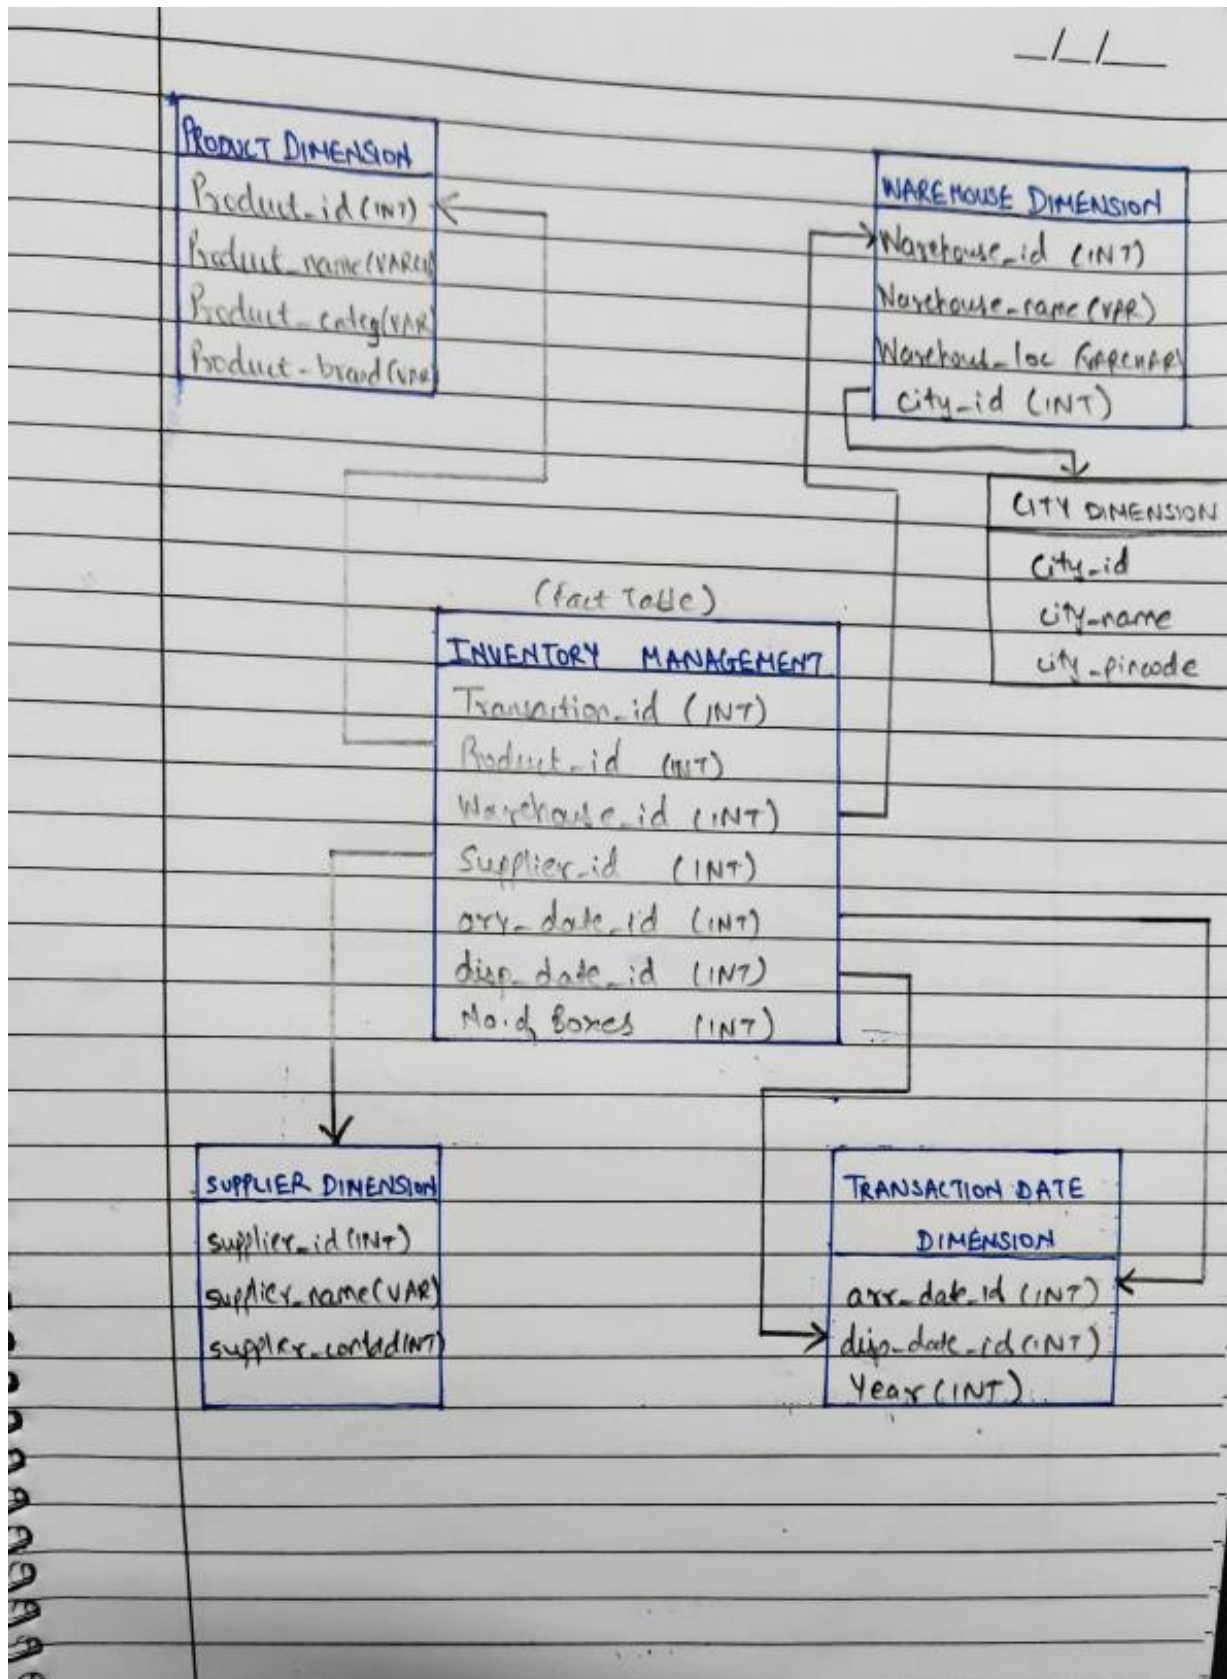 _/_/__
PRODUCT DIMENSION
Product_id (INT)
Product_name (VARCH
Product_categ (VAR)
Product_brand (VAR)
WAREHOUSE DIMENSION
Warehouse_id (INT)
Warehouse_name (VAR)
Warehous_loc (VARCHAR)
city_id (INT)
CITY DIMENSION
City_id
city_name
city_pincode
(fact Table)
INVENTORY MANAGEMENT
Transaction_id (INT)
Product_id (INT)
Warehouse_id (INT)
Supplier_id (INT)
arr_date_id (INT)
disp_date_id (INT)
No.of Boxes (INT)
SUPPLIER DIMENSION
supplier_id (INT)
supplier_name (VAR)
TRANSACTION DATE
DIMENSION
arr_date_id (INT)
disp_date_id (INT)
Year (INT)